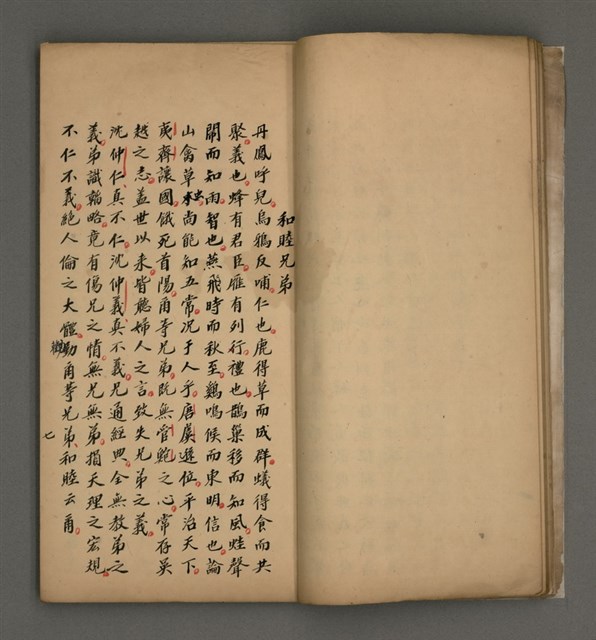 和睦兄弟
丹鳳呼兒烏鴉反哺仁也鹿得草而成群蟻得食而共
聚義也蜂有君臣雁有列行禮也鵲巢移而知風蛙聲
鬧而知雨智也燕飛時而秋至鷄鳴候而東明信也論
山禽草虫尚能知五常况于人乎唐虞遜位平治天下
夷齊讓國餓死首陽甬等兄弟既無管鮑之心常存吳
越之志盖世以来皆聽婦人之言致失兄弟之義
沈仲仁真不仁沈仲義真不義兄通經典全無教弟之
義弟識韜略竟有傷兄之情無兄無弟損天理之宏規
不仁不義絕人倫之大體勸甬等兄弟和睦云甬
七